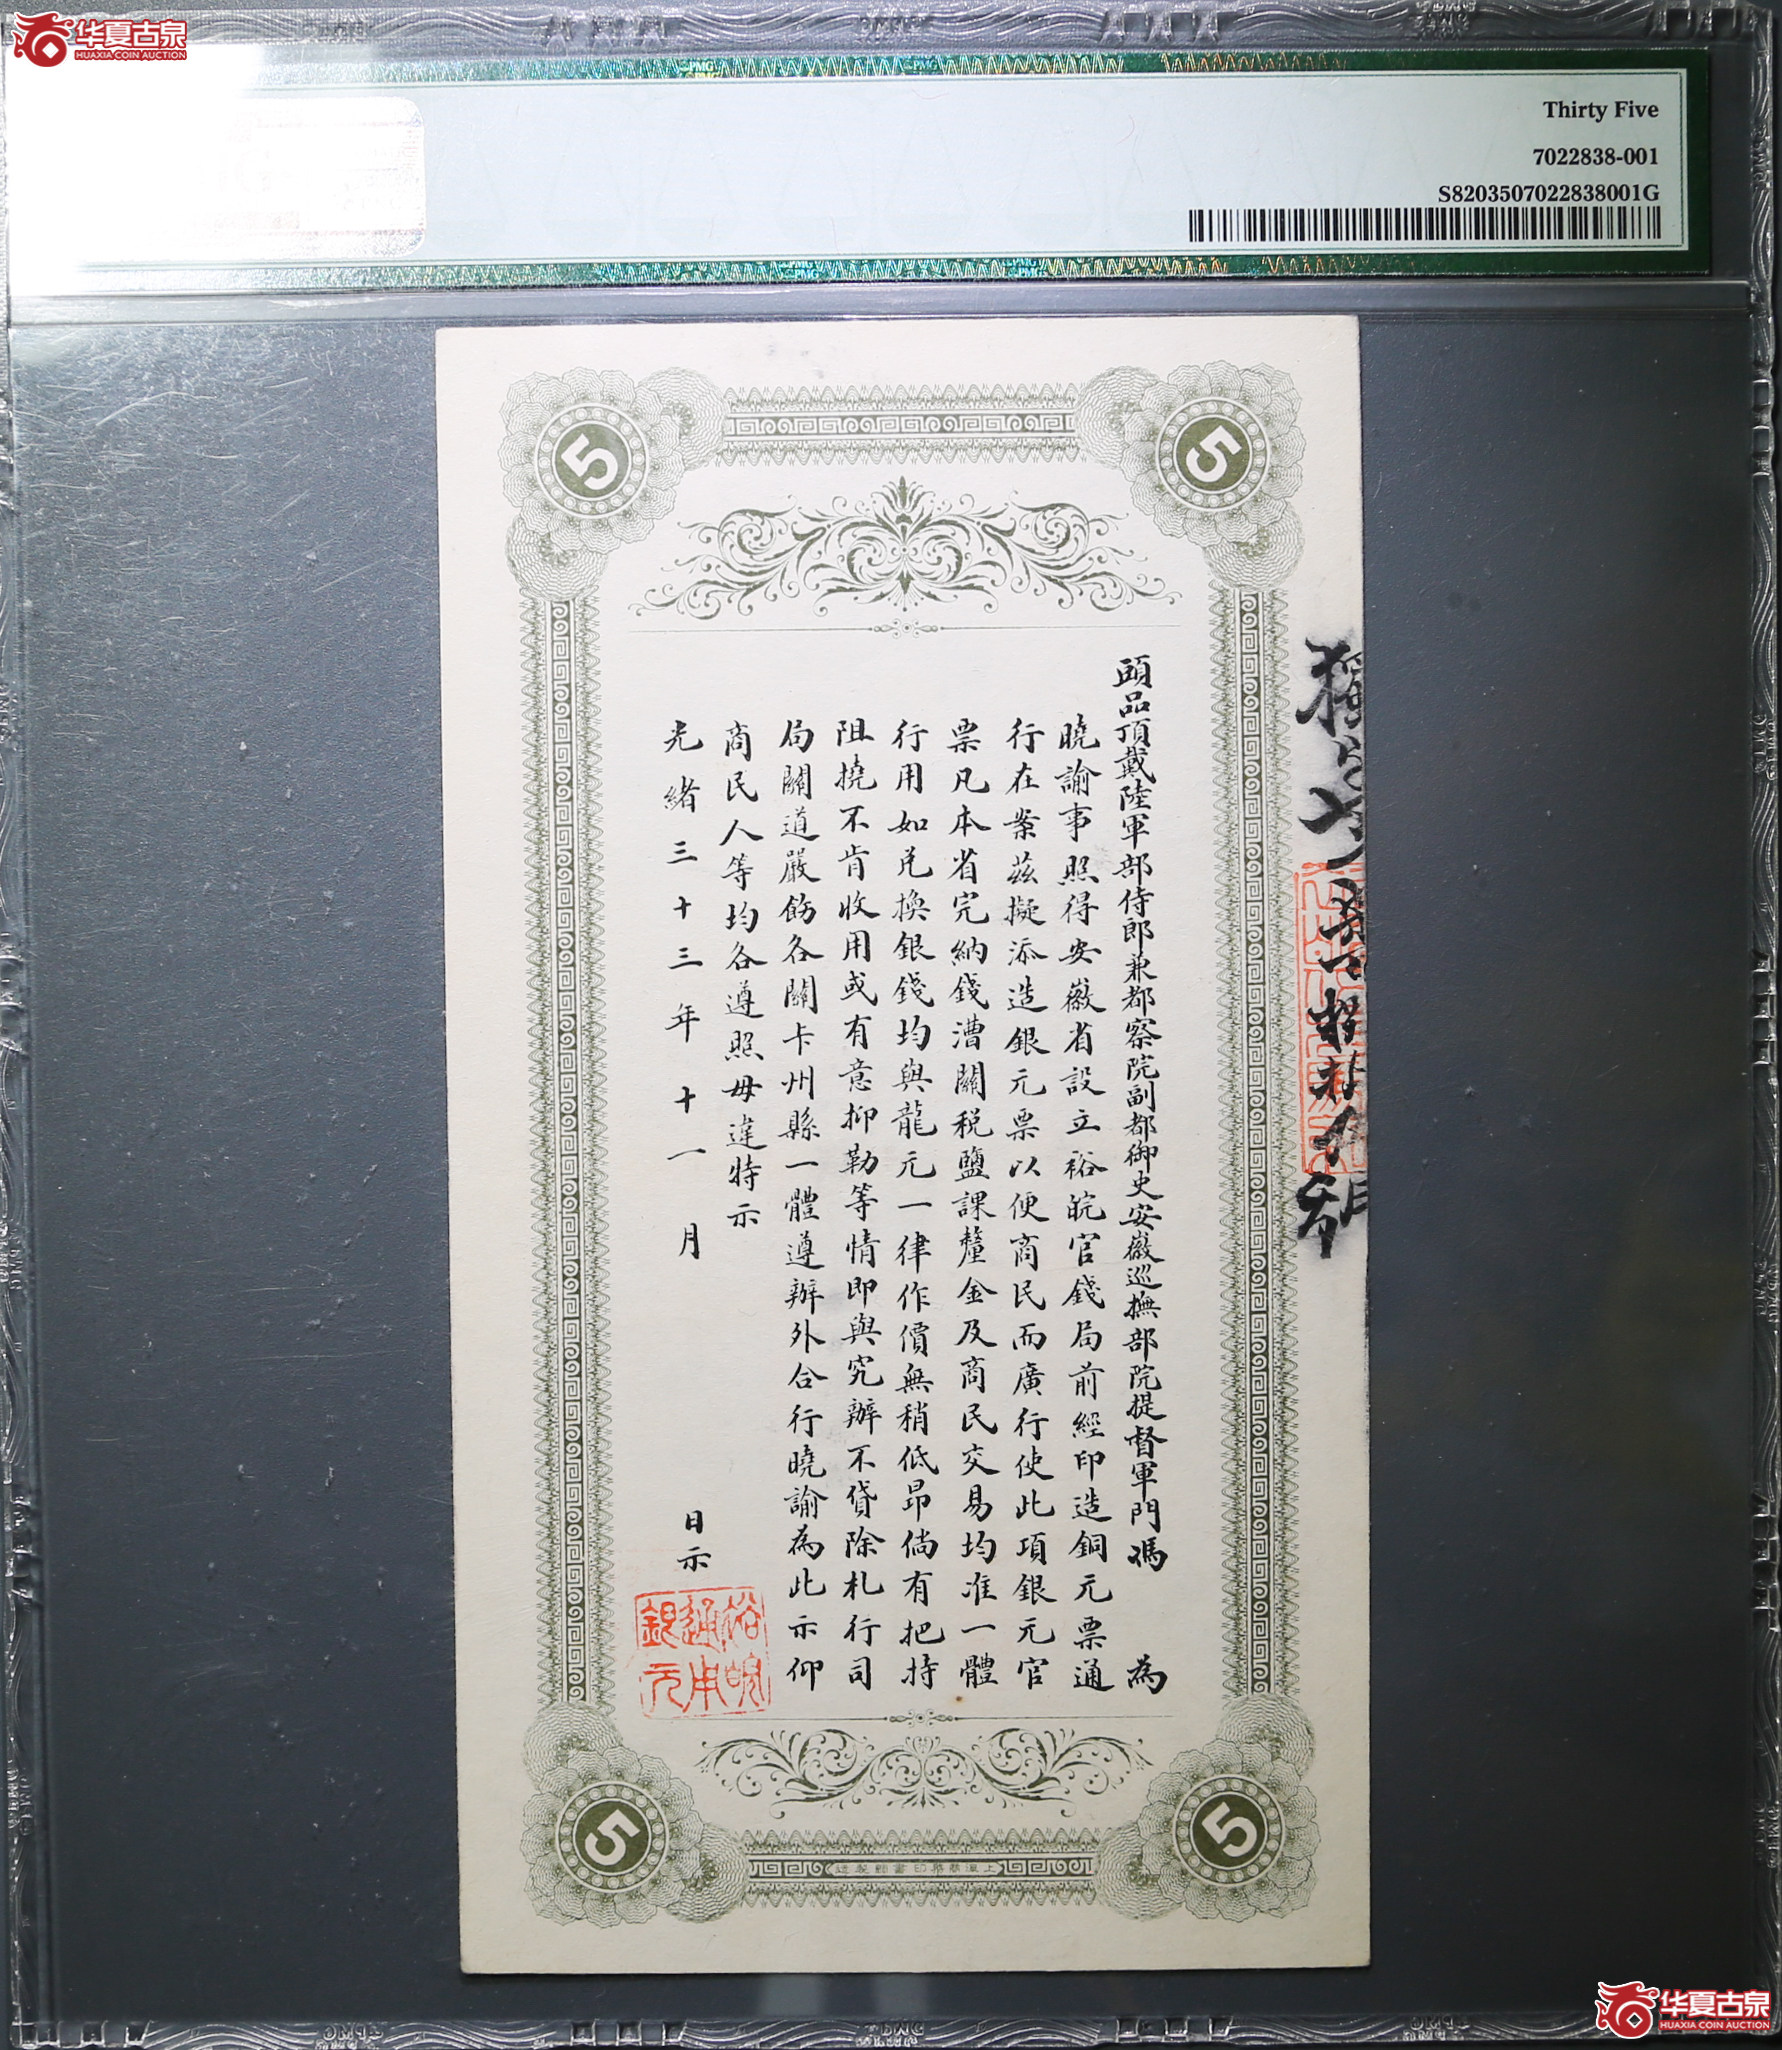 华夏古泉
HUAXIA COIN AUCTION
PMG
Thirty Five
7022838-001
S8203507022838001G
5
5
頭品頂戴陸軍部侍郎兼都察院副都御史安徽巡撫部院提督軍門馮 為
曉諭事照得安徽省設立裕皖官錢局前經印造銅元票通
行在案茲擬添造銀元票以便商民而廣行使此項銀元官
票凡本省完納錢漕關稅鹽課釐金及商民交易均准一體
行用如兌換銀錢均與龍元一律作價無稍低昂倘有把持
阻撓不肯收用或有意抑勒等情即與究辦不貸除札行司
局關道嚴飭各關卡州縣一體遵辦外合行曉諭為此示仰
商民人等均各遵照毋違特示
光緒三十三年十一月 日示
裕皖
通用
銀元
5
5
上海商務印書館製造
华夏古泉
HUAXIA COIN AUCTION